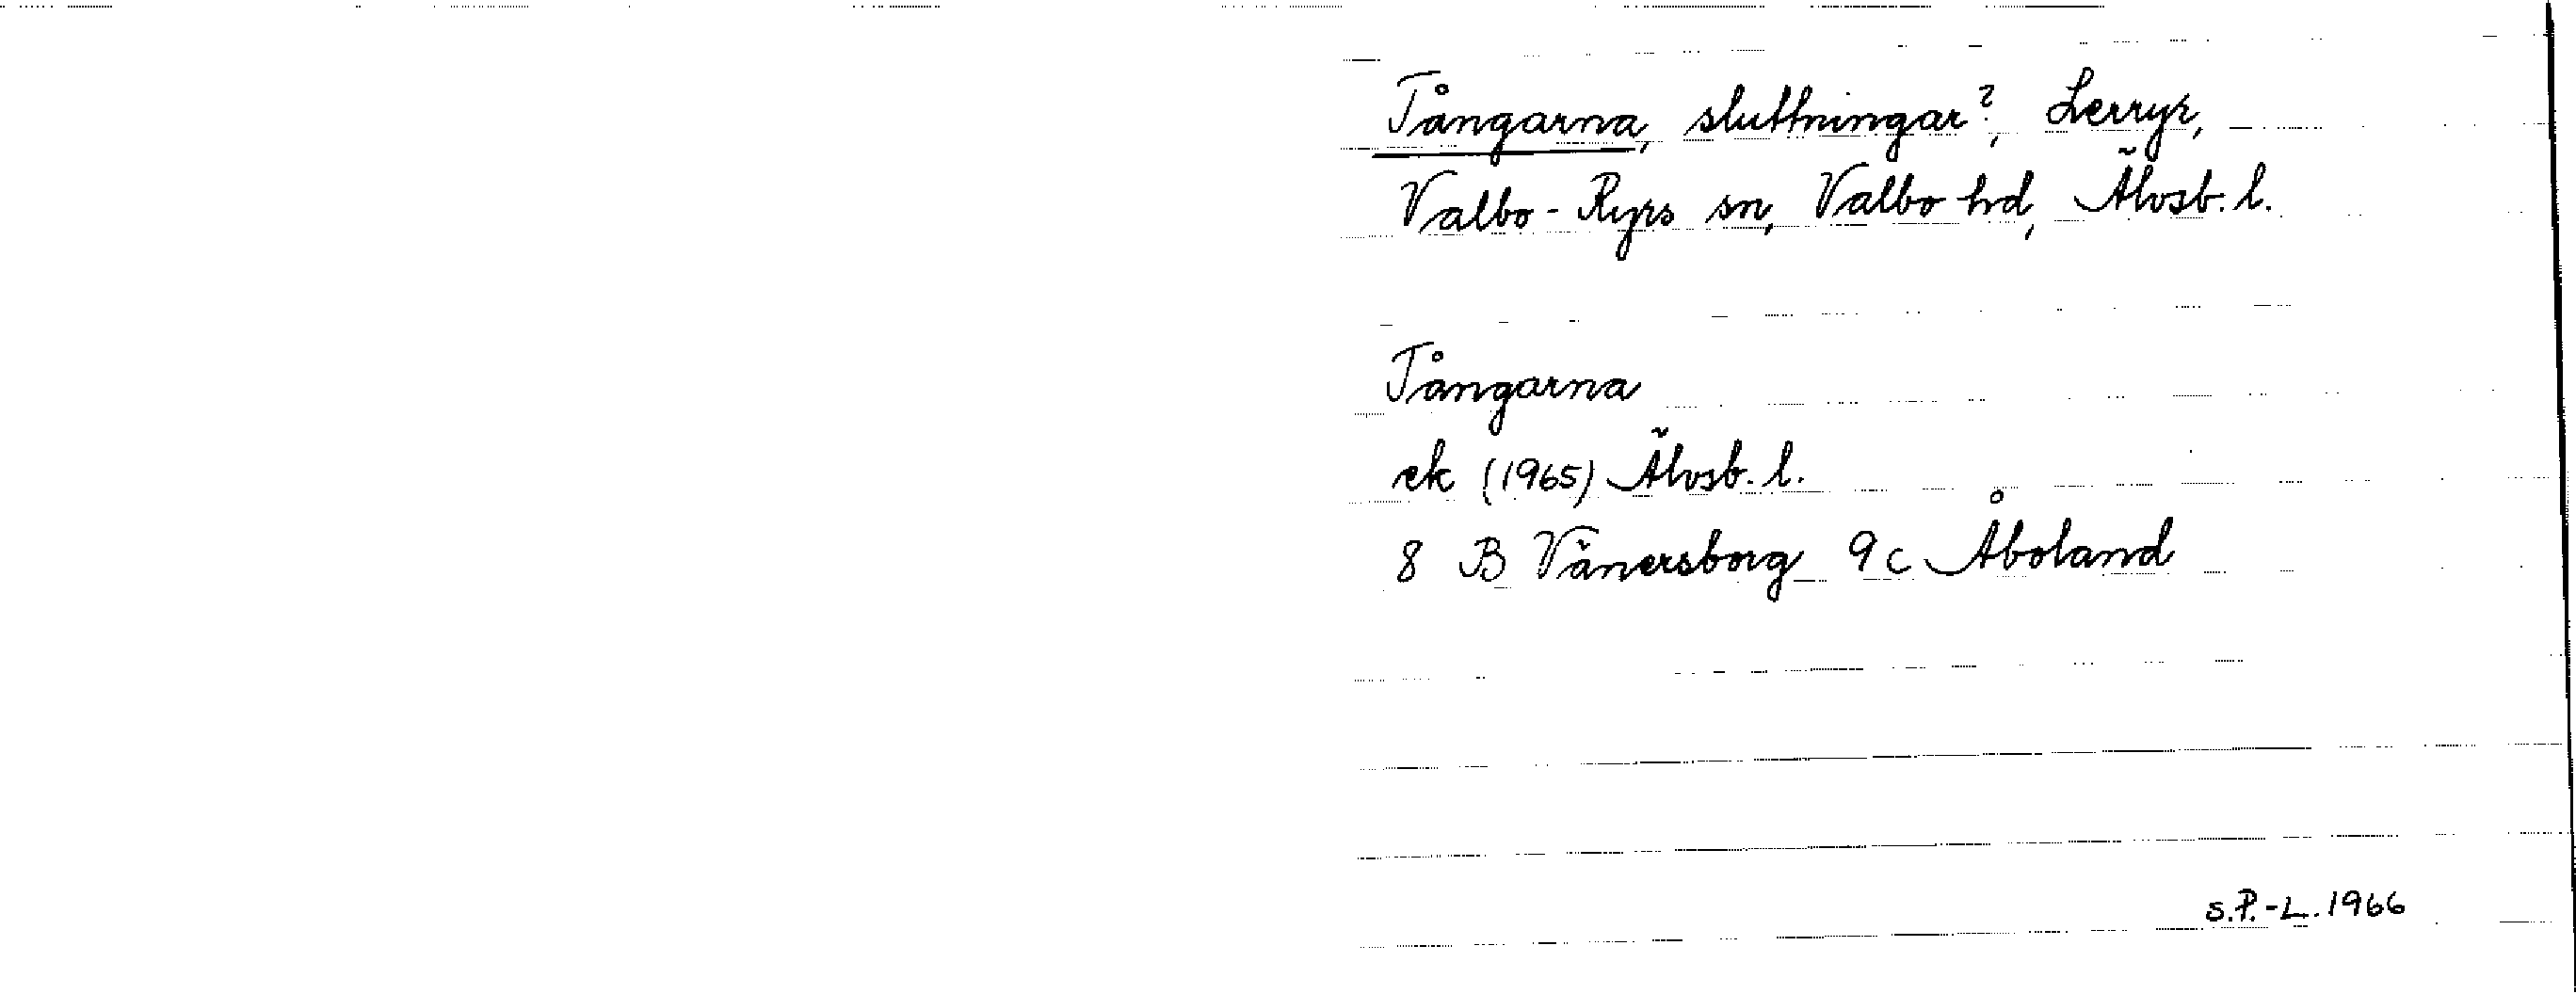 Tångarna, sluttningar?, Lerryr,
Valbo-Ryrs sn, Valbo hd, Älvsb. l.
Tångarna
ek (1965) Älvsb. l.
8 B Vänersborg 9c Åboland
S.P.-L. 1966